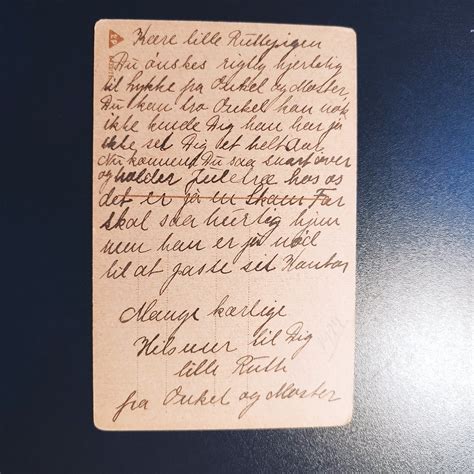 Kære lille Ruttepigen
Du ønskes rigtig hjertelig
til lykke fra Onkel og Moster,
Du kan tro Onkel han nok
ikke kunde Dig han har jo
ikke set Dig et helt Aar
Nu kommer Du saa snart over
og holder Juletræ hos os
det er jo en Skam Far
skal saa hurtig hjem
men han er jo nød
til at passe sit Kontor
Mange kærlige
Hilsener til Dig
lille Ruth
fra Onkel og Moster